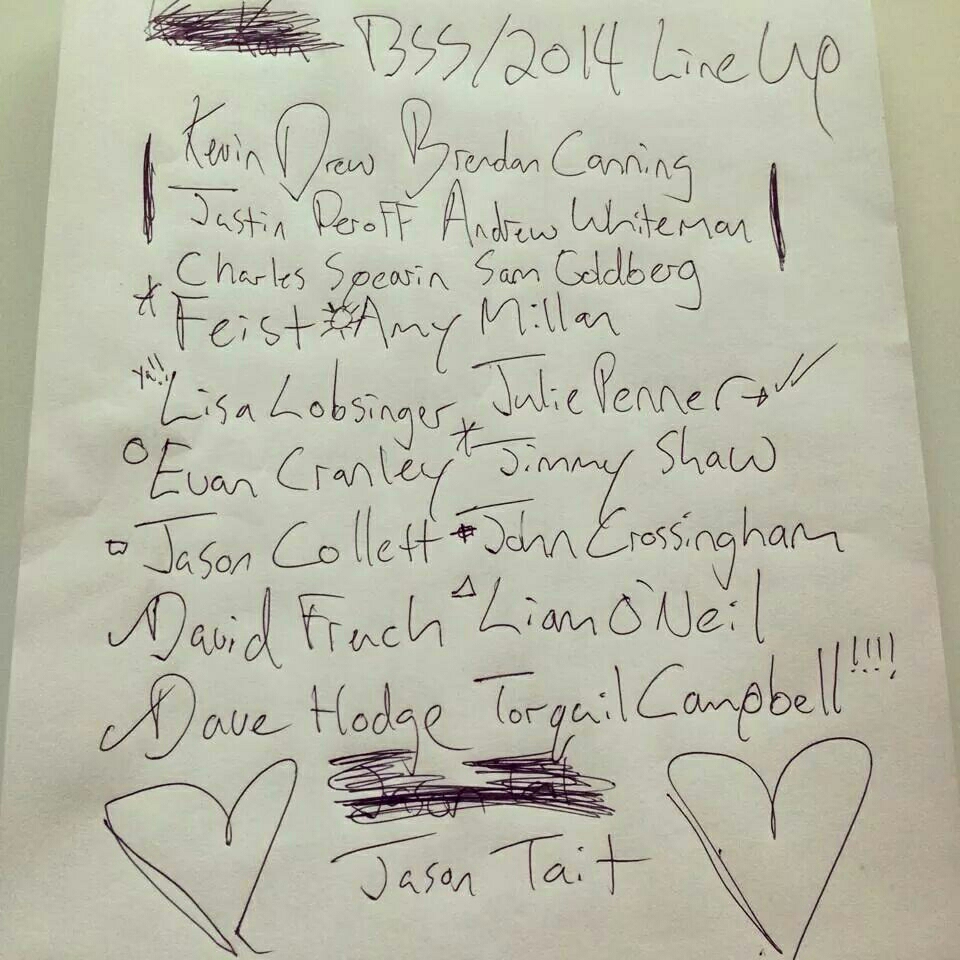 BSS/2014 Line Up
Kevin Drew Brendan Canning
Justin Peroff Andrew Whiteman
Charles Spearin Sam Goldberg
Feist Amy Millan
ya!! Lisa Lobsinger Julie Penner
Evan Cranley Jimmy Shaw
Jason Collett John Crossingham
David French Liam O'Neil
Dave Hodge Torquil Campbell!!!!
Jason Tait
Jason Tait